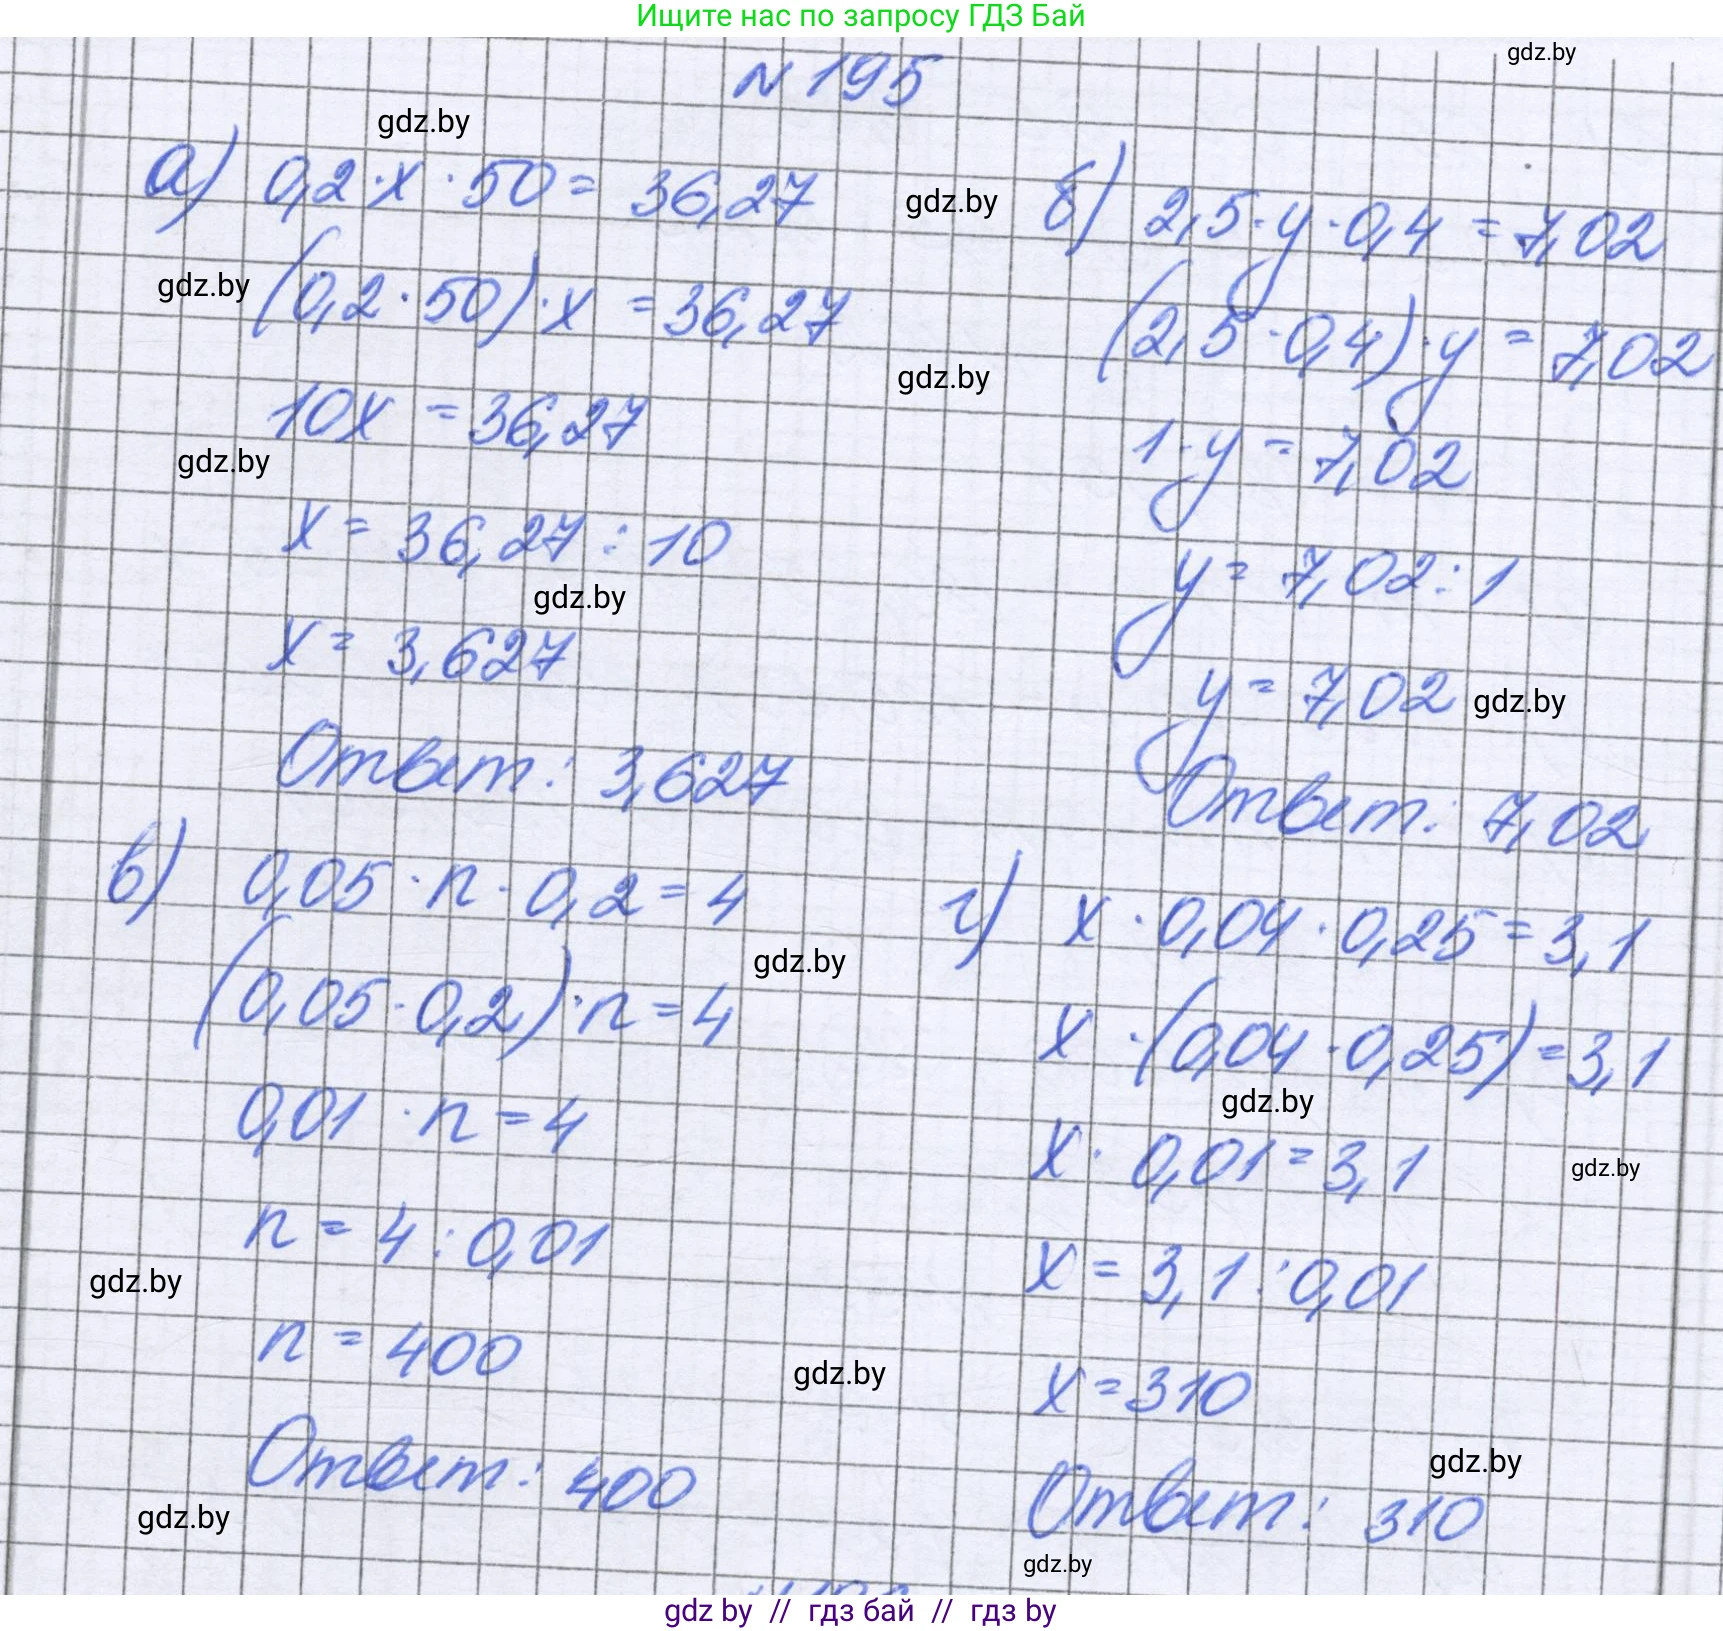 Ищите нас по запросу ГДЗ Бай
gdz.by
N 195
gdz.by
а) 0,2 · x · 50 = 36,27
gdz.by
(0,2 · 50) · x = 36,27
gdz.by
10x = 36,27
gdz.by
x = 36,27 : 10
gdz.by
x = 3,627
Ответ: 3,627
б) 2,5 · y · 0,4 = 7,02
(2,5 · 0,4) · y = 7,02
gdz.by
1 · y = 7,02
y = 7,02 : 1
y = 7,02
gdz.by
Ответ: 7,02
в) 0,05 · n · 0,2 = 4
gdz.by
(0,05 · 0,2) · n = 4
0,01 · n = 4
n = 4 : 0,01
gdz.by
n = 400
gdz.by
Ответ: 400
gdz.by
г) x · 0,04 · 0,25 = 3,1
x · (0,04 · 0,25) = 3,1
gdz.by
x · 0,01 = 3,1
gdz.by
x = 3,1 : 0,01
x = 310
gdz.by
Ответ: 310
gdz.by
gdz by // гдз бай // гдз by